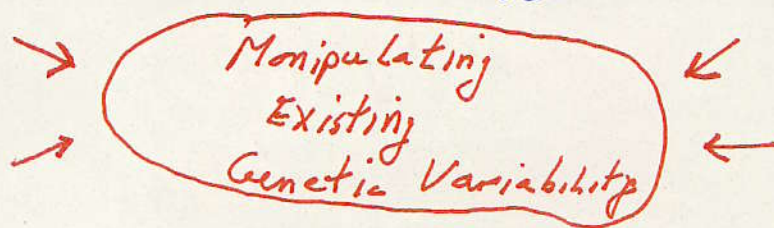 Manipulating
Existing
Genetic Variability